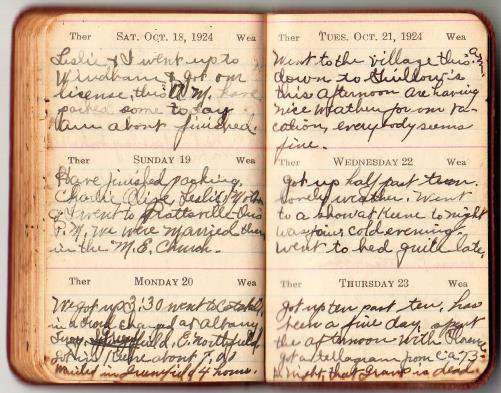 Ther SAT. OCT. 18, 1924 Wea
Leslie & I went up to
Windham & got our
license this A.M. have
packed some to day
am about finished.
Ther SUNDAY 19 Wea
Have finished packing.
Charlie Olive, Leslie,
& I went to Prattsville this
P.M. we were married there
in the M.E. Church.
Ther MONDAY 20 Wea
We got up 3:30 went to Catskill
in a changed at Albany
Troy, field, E. Northfield
got in Keene about 7.
waited in Greenfield 4 hours.
Ther TUES. OCT. 21, 1924 Wea
Went to the village this A.M.
down to
this afternoon are having
nice weather for our va-
cation, everybody seems
fine.
Ther WEDNESDAY 22 Wea
Got up half past ten.
Lovely weather. Went
to a show at Keene to night
was cold evening.
went to bed quite late,
Ther THURSDAY 23 Wea
Got up ten past ten, has
been a fine day, spent
the afternoon with
got a tellagram from
to night, that Gram is dead.